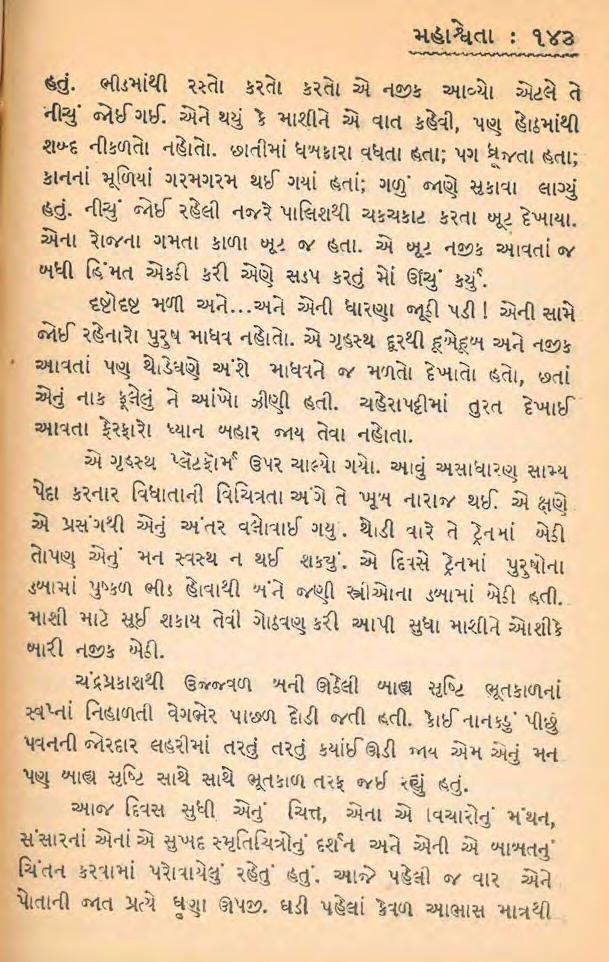 મહાશ્વેતા : ૧૪૩
હતું. ભીડમાંથી રસ્તો કરતો કરતો એ નજીક આવ્યો એટલે તે
નીચું જોઈ ગઈ. એને થયું કે માશીને એ વાત કહેવી, પણ હોઠમાંથી
શબ્દ નીકળતો નહોતો. છાતીમાં ધબકારા વધતા હતા; પગ ધ્રૂજતા હતા;
કાનનાં મૂળિયાં ગરમગરમ થઈ ગયાં હતાં; ગળું જાણે સૂકાવા લાગ્યું
હતું. નીચું જોઈ રહેલી નજરે પાલિશથી ચકચકાટ કરતા બૂટ દેખાયા.
એના રોજના ગમતા કાળા બૂટ જ હતા. એ બૂટ નજીક આવતાં જ
બધી હિંમત એકઠી કરી એણે સડપ કરતું મોં ઊંચું કર્યું.
દૃષ્ટોદૃષ્ટ મળી અને...અને એની ધારણા જૂઠી પડી! એની સામે
જોઈ રહેનારો પુરુષ માધવ નહોતો. એ ગૃહસ્થ દૂરથી હૂબેહૂબ અને નજીક
આવતાં પણ થોડેઘણે અંશે માધવને જ મળતો દેખાતો હતો, છતાં
એનું નાક ફૂલેલું ને આંખો ઝીણી હતી. ચહેરાપટ્ટીમાં તુરત દેખાઈ
આવતા ફેરફારો ધ્યાન બહાર જાય તેવા નહોતા.
એ ગૃહસ્થ પ્લૅટફૉર્મ ઉપર ચાલ્યો ગયો. આવું અસાધારણ સામ્ય
પેદા કરનાર વિધાતાની વિચિત્રતા અંગે તે ખૂબ નારાજ થઈ. એ ક્ષણે
એ પ્રસંગથી એનું અંતર વલોવાઈ ગયુ. થોડી વારે તે ટ્રેનમાં બેઠી
તોપણ એનું મન સ્વસ્થ ન થઈ શકયું. એ દિવસે ટ્રેનમાં પુરુષોના
ડબામાં પુષ્કળ ભીડ હોવાથી બંને જણી સ્ત્રીઓના ડબામાં બેઠી હતી.
માશી માટે સૂઈ શકાય તેવી ગોઠવણ કરી આપી સુધા માશીને ઓશીકે
બારી નજીક બેઠી.
ચંદ્રપ્રકાશથી ઉજ્જવળ બની ઊઠેલી બાહ્ય સૃષ્ટિ ભૂતકાળનાં
સ્વપ્નાં નિહાળતી વેગભેર પાછળ દોડી જતી હતી. કોઈ નાનકડું પીછું
પવનની જોરદાર લહરીમાં તરતું તરતું કયાંઈ ઊડી જાય એમ એનું મન
પણ બાહ્ય સૃષ્ટિ સાથે સાથે ભૂતકાળ તરફ જઈ રહ્યું હતું.
આજ દિવસ સુધી એનું ચિત્ત, એના એ વિચારોનું મંથન,
સંસારનાં એનાં એ સુખદ સ્મૃતિચિત્રોનું દર્શન અને એની એ બાબતનું
ચિંતન કરવામાં પરોવાયેલું રહેતું હતું. આજે પહેલી જ વાર એને
પોતાની જાત પ્રત્યે ઘૃણા ઊપજી. ઘડી પહેલાં કેવળ આભાસ માત્રથી